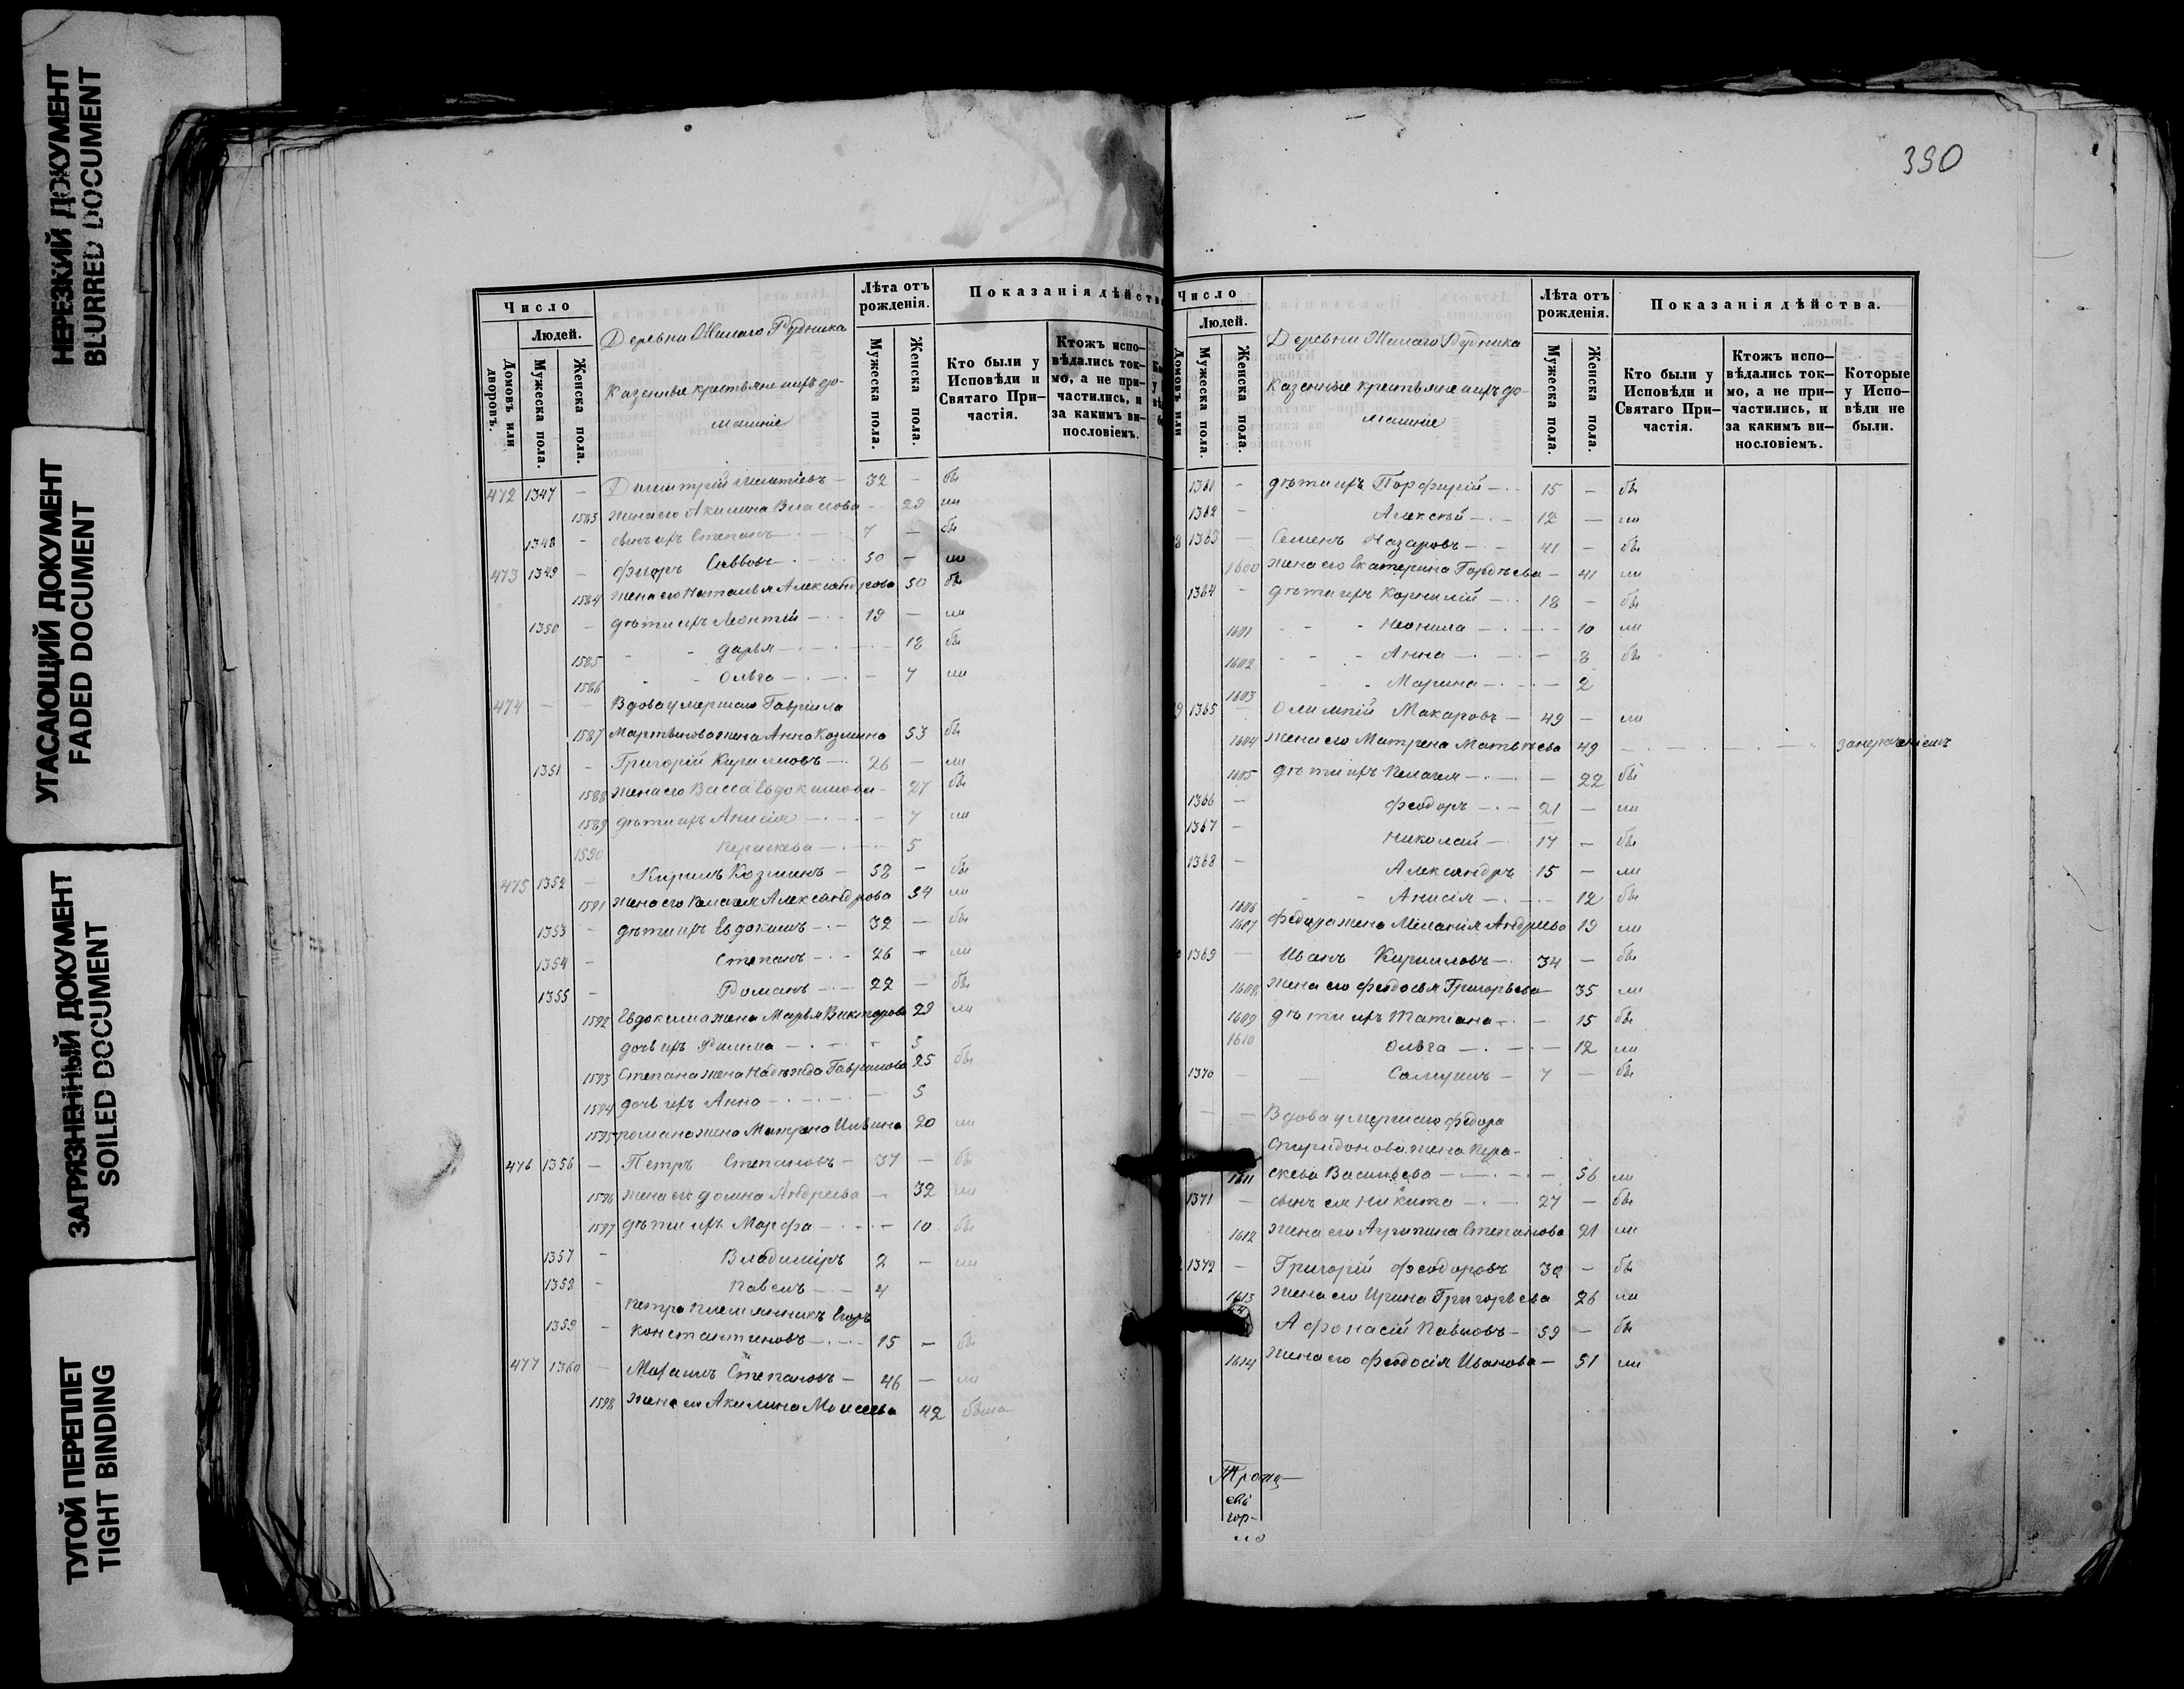 НЕРЕЗКИЙ ДОКУМЕНТ
BLURRED DOCUMENT
УГАСАЮЩИЙ ДОКУМЕНТ
FADED DOCUMENT
ЗАГРЯЗНЕННЫЙ ДОКУМЕНТ
SOILED DOCUMENT
ТУГОЙ ПЕРЕПЛЕТ
TIGHT BINDING
Число
Людей.
Домовъ или дворовъ.
Мужеска пола.
Женска пола.
Деревни Рудника
Казенные крестьяне ихъ до-
машніе
Лѣта отъ рожденія.
Мужеска пола.
Женска пола.
Показанія дѣйств
Кто были у Исповѣди и Святаго При-частія.
Ктожъ испо-вѣдались ток-мо, а не при-частились, и за какимъ ви-нословіемъ.
472 1347 — Димитрій — 32 — бы
1583 жена его Акилина Власова — 29 ли
1348 — сынъ ихъ Степанъ — 7 — бы
473 1349 — Савовъ — 50 — ли
1584 жена его Наталья Александрова 50 бы
1350 — дѣти ихъ Леонтій — 19 — ли
1585 Дарья — 18 бы
1586 Ольга — 7 ли
474 — — Вдова умершаго Гавріила
1587 Мартынова жена Анна Козмина 53 бы
1351 — Григорій Кириловъ — 26 — ли
1588 жена его Васса Евдокимова — 27 бы
1589 дѣти ихъ Анисія — 7 ли
1590 — 5
475 1352 — Кирилъ Козминъ — 58 — бы
1591 жена его Пелагея Александрова 54 ли
1353 — дѣти ихъ Евдокимъ — 32 — бы
1354 — Степанъ — 26 — ли
1355 — Романъ — 22 — бы
1592 Евдокима жена Марья Викторова 29 ли
дочь ихъ — 5
1593 Степана жена Надежда Гаврилова 25 бы
1594 дочь ихъ Анна — 5
1595 романа жена Матрена Ильина 20 ли
476 1356 — Петръ Степановъ — 37 — бы
1596 жена его домна Андреева — 32 ли
1597 дѣти ихъ Марфа — 10 бы
1357 — Владиміръ 2 — ли
1358 — Павелъ — 4
Петра племянникъ Егоръ
1359 — Константиновъ — 15 — бы
477 1360 — Степановъ — 46 — ли
1598 жена его Акилина Моисеева 42 были
390
Число
Людей.
Домовъ или
Мужеска пола.
Женска пола.
Деревни Рудника
Казенные крестьяне ихъ до-
машніе
Лѣта отъ рожденія.
Мужеска пола.
Женска пола.
Показанія дѣйства.
Кто были у Исповѣди и Святаго При-частія.
Ктожъ испо-вѣдались ток-мо, а не при-частились, и за какимъ ви-нословіемъ.
Которые у Испо-вѣди не были.
1361 — дѣти ихъ Порфирій — 15 — бы
1362 — Алексѣй — 12 — ли
8 1363 — Семенъ Назаровъ — 41 — бы
1600 жена его Екатерина Гордѣева — 41 ли
1364 — дѣти ихъ Корнилій — 18 — бы
1601 Неонила — 10 ли
1602 Анна — 8 бы
1603 Марина — 2
9 1365 — Олимпій Макаровъ — 49 — ли
1604 жена его Матрена Матвѣева 49 —
1605 дѣти ихъ Пелагея — 22 бы
1366 — Феодоръ — 21 — ли
1367 — Николай — 17 — бы
1368 — Александръ 15 — ли
1606 Анисія — 12 бы
1607 Федора жена Меланія Андреева 19 ли
1369 — Иванъ Кирилловъ — 34 — бы
1608 жена его Феодосья Григорьева — 35 ли
1609 дѣти ихъ Татіана — 15 бы
1610 Ольга — 12 ли
1370 — Самуилъ — 7 — бы
— — Вдова умершаго Федора
Спиридонова жена Пара-
1611 скева Васильева — 56 ли
1371 — сынъ ея Никита — 27 — бы
1612 жена его Агрипина Степанова 21 ли
1372 — Григорій Феодоровъ 30 — бы
1613 жена его Ирина Григорьева 26 ли
Афонасій Павловъ — 59 — бы
1614 жена его Феодосія Иванова — 51 ли